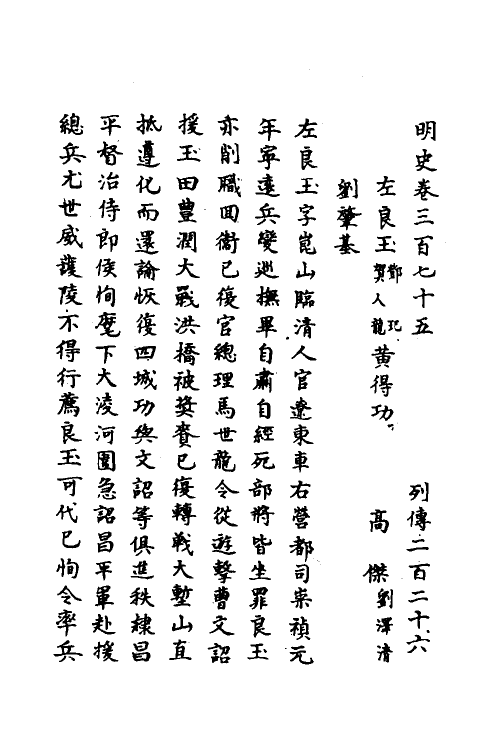 明史卷三百七十五 列傳二百二十六
左良玉 鄧玘 賀人龍 黃得功 高 傑 劉澤清
劉肇基
左良玉字崑山臨清人官遼東車右營都司崇禎元
年寧遠兵變巡撫畢自肅自經死部將皆坐罪良玉
亦削職回衞已復官總理馬世龍令從遊擊曹文詔
援玉田豐潤大戰洪橋被獎賚已復轉戰大塹山直
抵遵化而還論恢復四城功與文詔等俱進秩隸昌
平督治侍郎侯恂麾下大凌河圍急詔昌平軍赴援
總兵尤世威護陵不得行薦良玉可代已恂令率兵